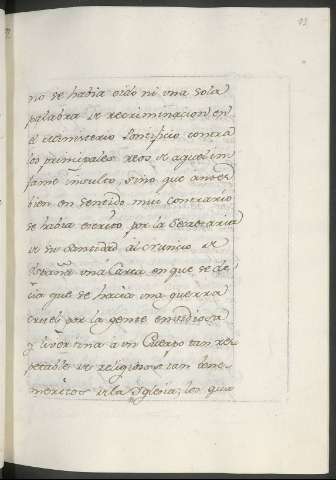 no se habia oido ni una sola
palabra de recriminacion en
el Ministerio Pontificio contra
los principales reos de aquel in
fame insulto, sino que antes
bien en sentido muy contrario
se habia escrito por la Secretaria
de su Santidad al Nuncio de
España una Carta en que se de
cia que se hacia una guerra
cruel por la gente embidiosa
y livertina a un Cuerpo tan res
petable de religiosos tan bene
meritos de la Iglesia; los que